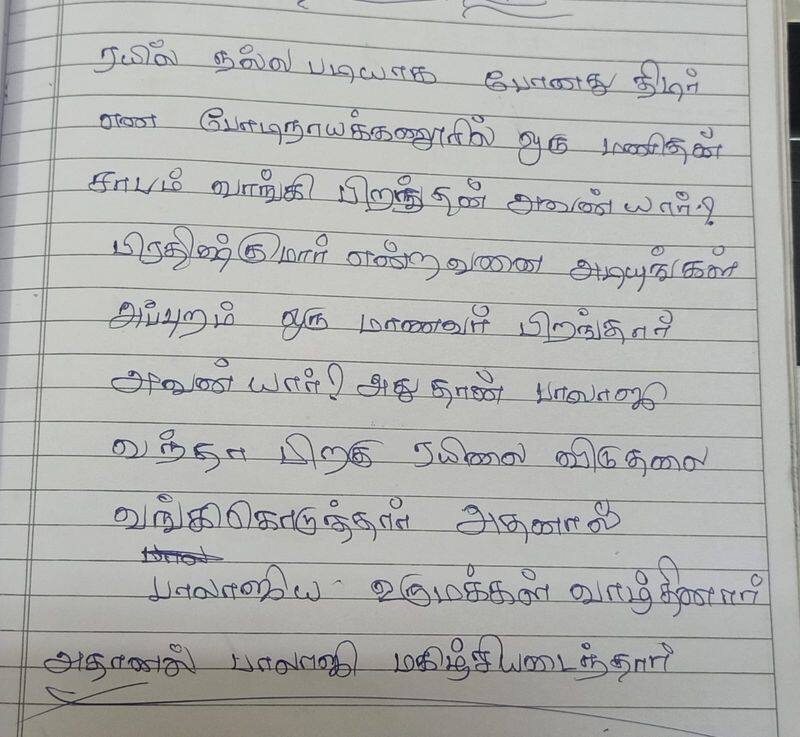 ரயில் நல்ல படியாக போனது திடிர்
என போடிநாயக்கனூரில் ஒரு மனிதன்
சாபம் வாங்கி பிறந்தன் அவன் யார்?
பிரதிஷ்குமார் என்றவனை அடியுங்கள்
அப்புறம் ஒரு மாணவர் பிறந்தார்
அவன் யார்? அது தான் பாலாஜி
வந்தா பிறகு ரயிலை விடுதலை
வங்கிகொடுத்தார் அதனால்
பாலாஜிய உருமக்கள் வாழ்தினார்
அதானல் பாலாஜி மகிழ்சியடைந்தார்